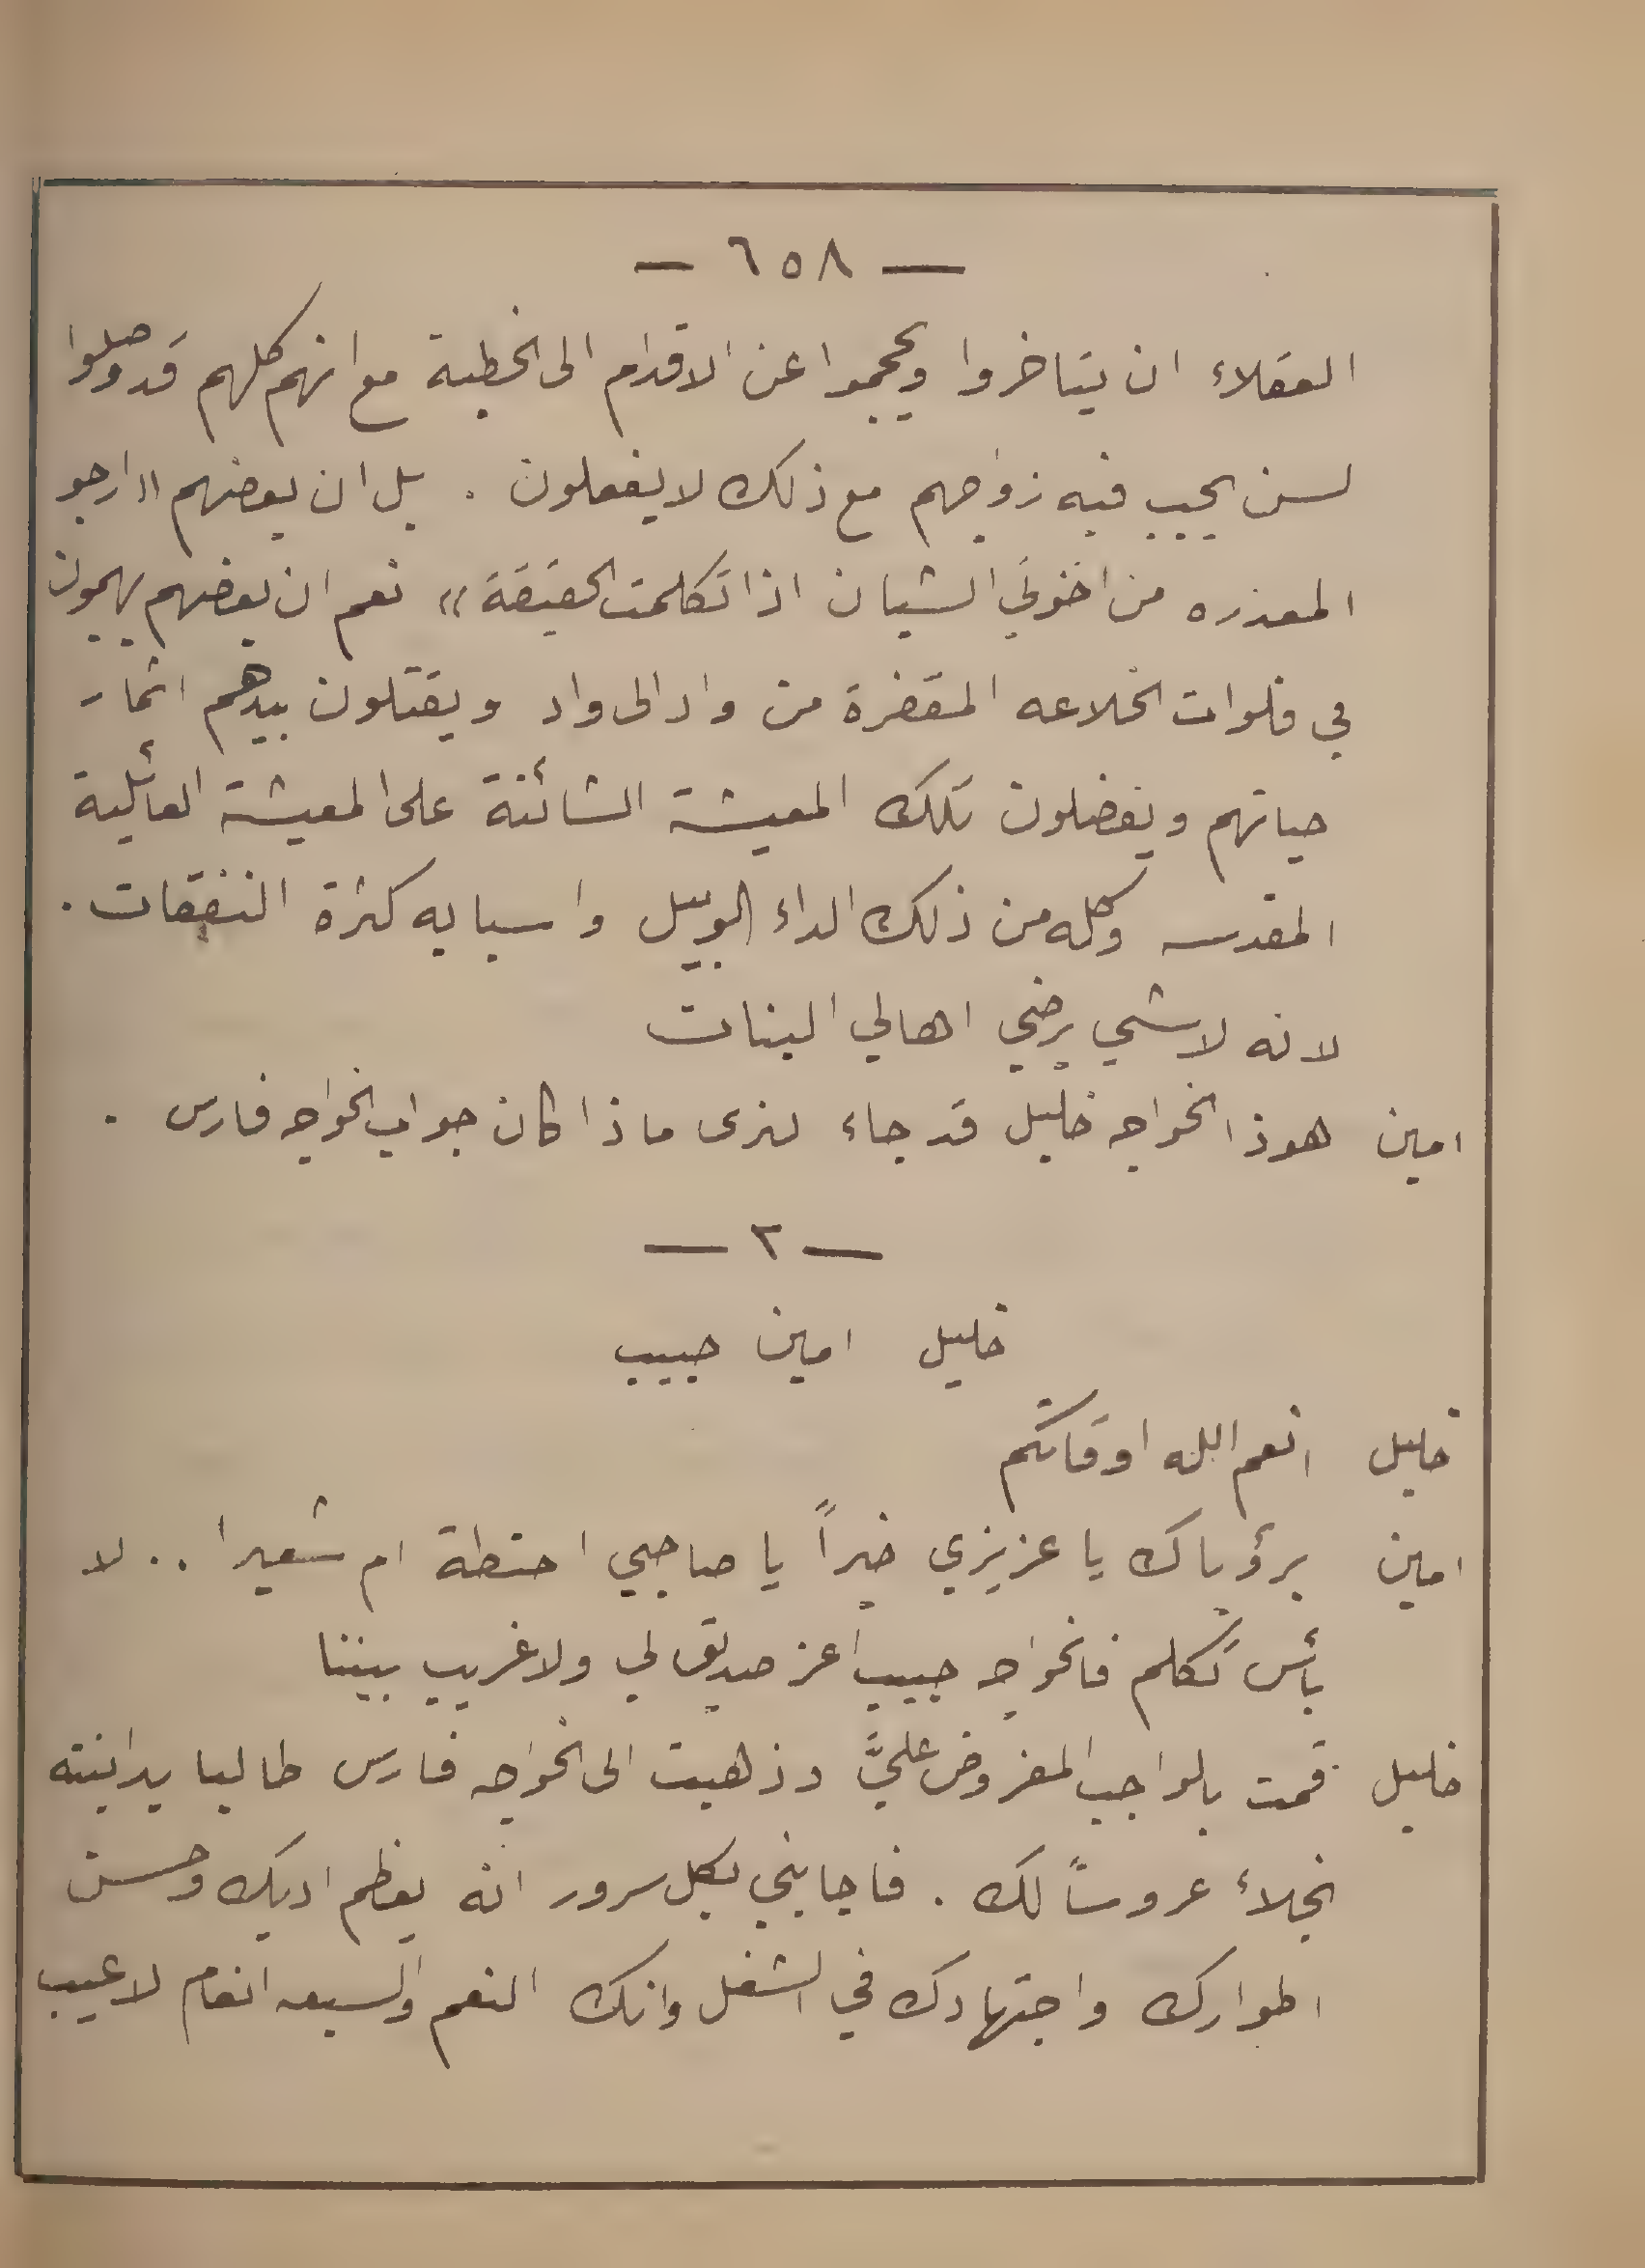 — ٦٥٨ —
العقلاء ان يتاخروا ويحجموا عن الاقدام الى الخطبة مع انهم كلهم قد وصلوا
لسن يجب فيه زواجهم مع ذلك لا يفعلون . بل ان بعضهم "ارجو
المعذره من اخوتي الشبان اذا تكلمت الحقيقة" نعم ان بعضهم يهيمون
في فلوات الخلاعه المقفرة من واد الى واد ويقتلون بيدهم اثمار
حياتهم ويفضلون تلك المعيشة الشائنة على المعيشة العائلية
المقدسه وكله من ذلك الداء الوبيل واسبابه كثرة النفقات .
لانه لا شي يرضي اهالي البنات
امين هوذا الخواجه خليل قد جاء لنرى ماذا كان جواب الخواجه فارس .
— ٢ —
خليل امين حبيب
خليل انعم الله اوقاتكم
امين برؤياك يا عزيزي خيراً يا صاحبي احنطة ام شعيرا .. لا
بأس تكلم فالخواجه حبيب اعز صديق لي ولا غريب بيننا
خليل قمت بالواجب المفروض عليَّ وذهبت الى الخواجه فارس طالبا يد ابنته
نجلاء عروساً لك . فاجابني بكل سرور انه يعظم ادبك وحسن
اطوارك واجتهادك في الشغل وانك النعم والسبعه انعام لا عيب